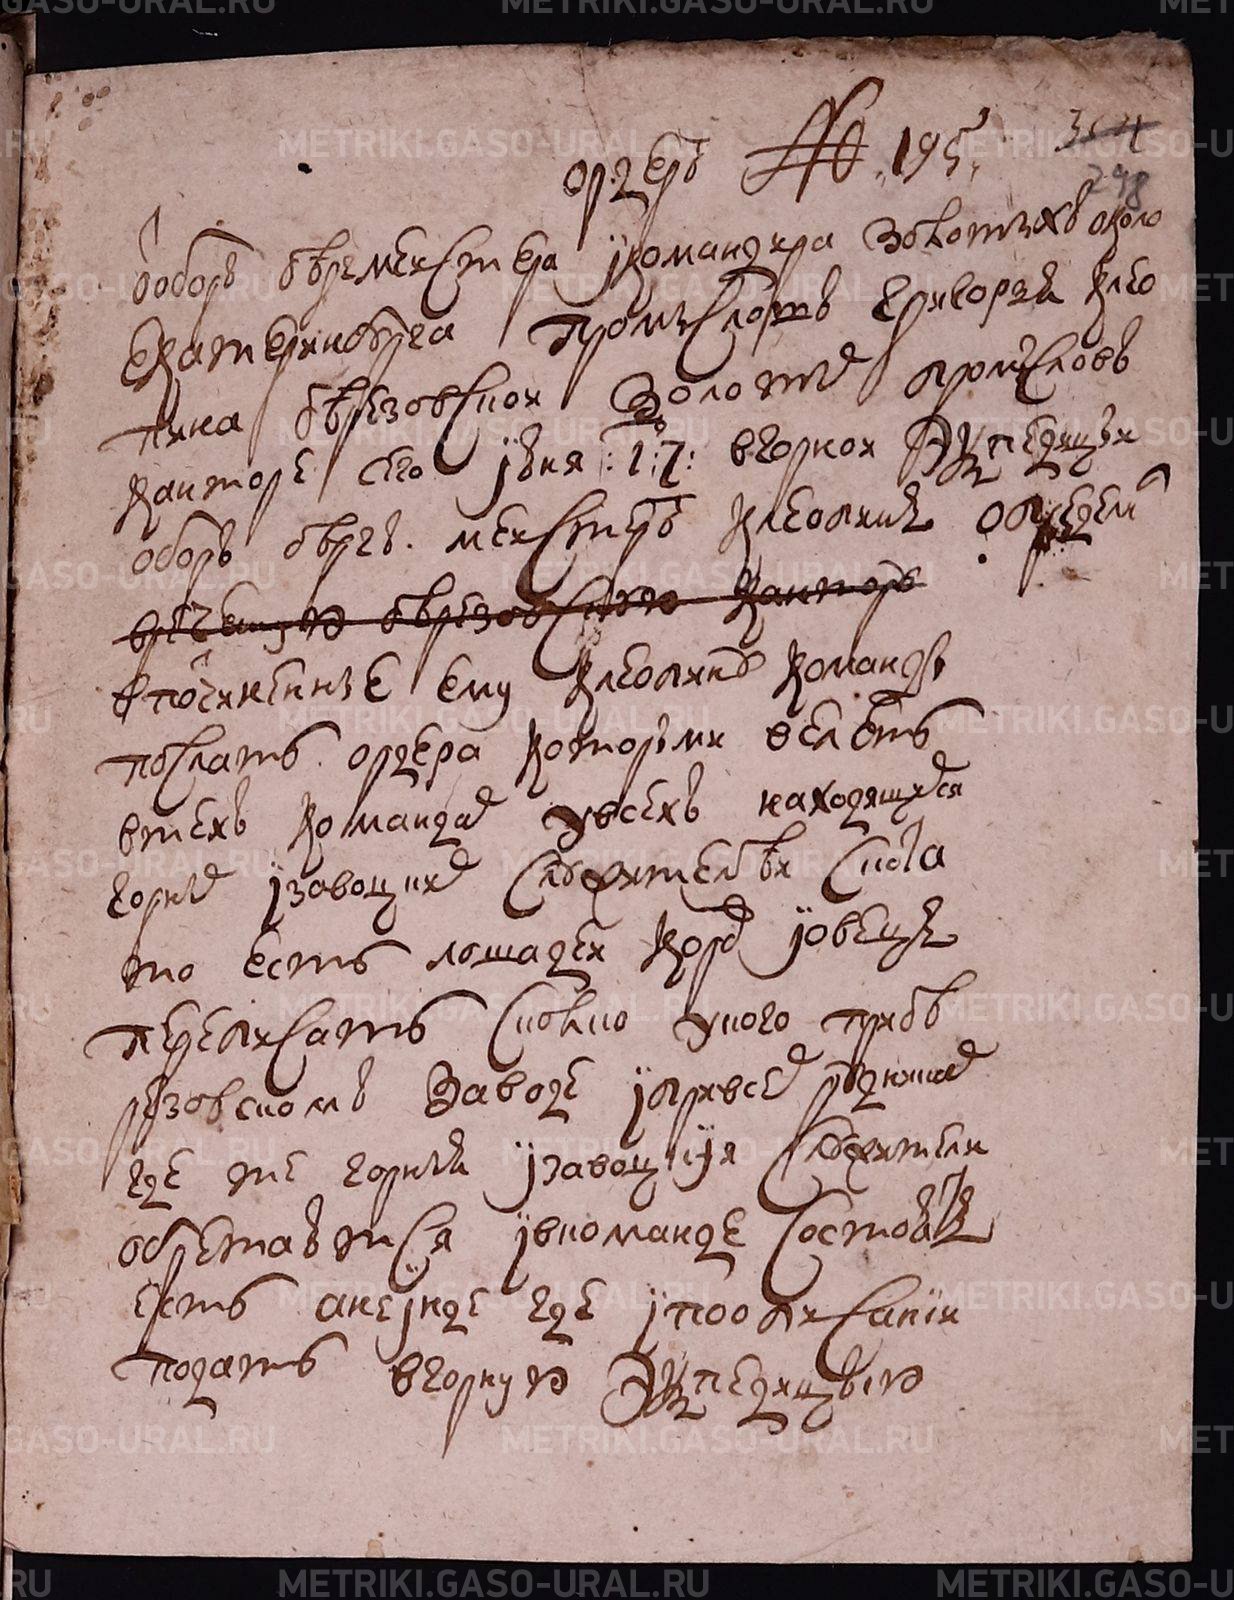 ордеръ № 195
304
298
ооборъ бергмейстера ӱкомандира золотыхъ около
екатеринбурга промысловъ григорья клео
пина березовской золотых промысловъ
канторе сего ӱюня :17: вгорной экспедицыи
оборъ бергъ. мейстеръ клеопинъ опредѣлил
березовскую кантору
впочиненные ему клеопину команды
послать ордера которыми велѣть
втехъ командах увсехъ находящихся
горных ӱзавоцких служителѣй скота
то есть лошадей коров ӱовецъ
переписать сколко укого прибѣ
резовскомъ заводе ӱпривсех рудниках
где те горныя ӱзавоцкӱя служители
обретаютса ӱвкоманде состоятъ
есть анеӱнде где ӱпоописанӱи
подать вгорную экспедицыю
METRIKI.GASO-URAL.RU